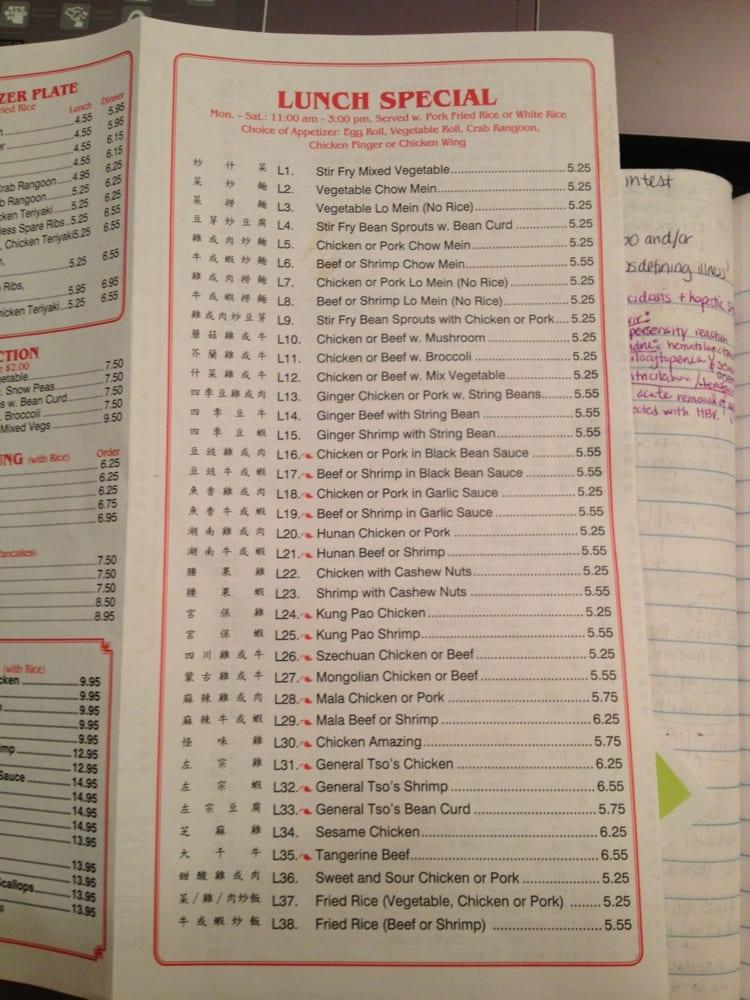 ZER PLATE
ried Rice
Lunch Dinner
4.55 5.95
4.55 5.95
4.55 6.15
4.55 6.15
Crab Rangoon 4.95 6.25
b Rangoon 5.25 6.25
cken Teriyaki 5.25 6.25
less Spare Ribs 5.25 6.55
, Chicken Teriyaki 5.25 6.55
5.25 6.55
Ribs, 5.95 6.95
hicken Teriyaki 5.25 6.55
CTION
e $2.00
getable 7.50
. Snow Peas 7.50
s w. Bean Curd 7.50
. Broccoli 7.50
Mixed Vegs 9.50
NG (with Rice) Order
6.25
6.25
6.25
6.75
6.95
Pancakes)
7.50
7.50
7.50
8.50
8.95
(with Rice)
cken 9.95
9.95
9.95
9.95
9.95
mp 12.95
12.95
Sauce 14.95
14.95
14.95
14.95
13.95
13.95
13.95
Scallops 13.95
13.95
LUNCH SPECIAL
Mon. - Sat.: 11:00 am - 3:00 pm, Served w. Pork Fried Rice or White Rice
Choice of Appetizer: Egg Roll, Vegetable Roll, Crab Rangoon,
Chicken Finger or Chicken Wing
炒什菜 L1. Stir Fry Mixed Vegetable 5.25
菜炒麵 L2. Vegetable Chow Mein 5.25
菜撈麵 L3. Vegetable Lo Mein (No Rice) 5.25
豆芽炒豆腐 L4. Stir Fry Bean Sprouts w. Bean Curd 5.25
雞或肉炒麵 L5. Chicken or Pork Chow Mein 5.25
牛或蝦炒麵 L6. Beef or Shrimp Chow Mein 5.55
雞或肉撈麵 L7. Chicken or Pork Lo Mein (No Rice) 5.25
牛或蝦撈麵 L8. Beef or Shrimp Lo Mein (No Rice) 5.25
雞或肉炒豆芽 L9. Stir Fry Bean Sprouts with Chicken or Pork 5.25
蘑菇雞或牛 L10. Chicken or Beef w. Mushroom 5.25
芥蘭雞或牛 L11. Chicken or Beef w. Broccoli 5.25
什菜雞或牛 L12. Chicken or Beef w. Mix Vegetable 5.25
四季豆雞或肉 L13. Ginger Chicken or Pork w. String Beans 5.55
四季豆牛 L14. Ginger Beef with String Bean 5.55
四季豆蝦 L15. Ginger Shrimp with String Bean 5.55
豆豉雞或肉 L16. Chicken or Pork in Black Bean Sauce 5.55
豆豉牛或蝦 L17. Beef or Shrimp in Black Bean Sauce 5.55
魚香雞或肉 L18. Chicken or Pork in Garlic Sauce 5.25
魚香牛或蝦 L19. Beef or Shrimp in Garlic Sauce 5.55
湖南雞或肉 L20. Hunan Chicken or Pork 5.25
湖南牛或蝦 L21. Hunan Beef or Shrimp 5.55
腰果雞 L22. Chicken with Cashew Nuts 5.25
腰果蝦 L23. Shrimp with Cashew Nuts 5.55
宮保雞 L24. Kung Pao Chicken 5.25
宮保蝦 L25. Kung Pao Shrimp 5.55
四川雞或牛 L26. Szechuan Chicken or Beef 5.25
蒙古雞或牛 L27. Mongolian Chicken or Beef 5.55
麻辣雞或肉 L28. Mala Chicken or Pork 5.75
麻辣牛或蝦 L29. Mala Beef or Shrimp 6.25
怪味雞 L30. Chicken Amazing 5.75
左宗雞 L31. General Tso's Chicken 6.25
左宗蝦 L32. General Tso's Shrimp 6.55
左宗豆腐 L33. General Tso's Bean Curd 5.75
芝麻雞 L34. Sesame Chicken 6.25
大千牛 L35. Tangerine Beef 6.55
甜酸雞或肉 L36. Sweet and Sour Chicken or Pork 5.25
菜/雞/肉炒飯 L37. Fried Rice (Vegetable, Chicken or Pork) 5.25
牛或蝦炒飯 L38. Fried Rice (Beef or Shrimp) 5.55
ntest
and/or
defining illness
cidosis + hepatic
persensity reaction
hematologic
acute removal
ected with HBV.